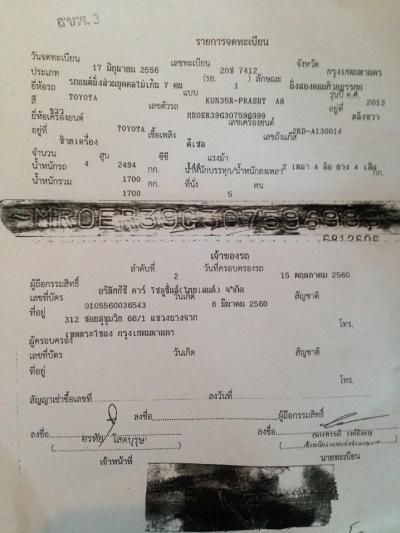 สบท. 3
รายการจดทะเบียน
วันจดทะเบียน 17 มิถุนายน 2556 เลขทะเบียน 2กช 7412 จังหวัด กรุงเทพมหานคร
ประเภท รถยนต์นั่งส่วนบุคคลไม่เกิน 7 คน (รย. 1) ลักษณะ นั่งสองตอนท้ายบรรทุก
ยี่ห้อรถ TOYOTA แบบ KUN35R-PRASHT A8 รุ่นปี ค.ศ. 2013
สี ขาว เลขตัวรถ MR0ER39G307596999 อยู่ที่
ยี่ห้อเครื่องยนต์ TOYOTA เลขเครื่องยนต์ 2KD-A130014
อยู่ที่ ซ้ายเครื่อง เชื้อเพลิง ดีเซล เลขถังแก๊ส
จำนวน 4 สูบ 2494 ซีซี แรงม้า 2 เพลา 4 ล้อ ยาง 4 เส้น
น้ำหนักรถ 1700 กก. น้ำหนักบรรทุก/น้ำหนักลงเพลา กก.
น้ำหนักรวม 1700 กก. ที่นั่ง 5 คน
MR0ER39G307596999
เจ้าของรถ
ลำดับที่ 2 วันที่ครอบครองรถ 15 พฤษภาคม 2560
ผู้ถือกรรมสิทธิ์ จำกัด
เลขที่บัตร 0105560036543 วันเกิด 6 มีนาคม 2560 สัญชาติ
ที่อยู่ 312 ซอยสุขุมวิท 66/1 แขวงบางจาก โทร.
เขตพระโขนง กรุงเทพมหานคร
ผู้ครอบครอง
เลขที่บัตร วันเกิด สัญชาติ
ที่อยู่ โทร.
สัญญาเช่าซื้อเลขที่ ลงวันที่
ลงชื่อ ผู้ถือกรรมสิทธิ์
ลงชื่อ ลงชื่อ
( อรทัย โสตบุรุษ )
เจ้าหน้าที่ นายทะเบียน